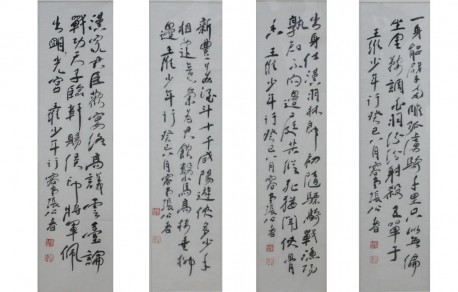 一身能擘兩雕弧虜騎千重只似無偏
坐金鞍調白羽紛紛射殺五單于
王維少年行癸巳八月
出身仕漢羽林郎初隨驃騎戰漁陽
孰知不向邊庭苦縱死猶聞俠骨
香王維少年行癸巳八月
新豐美酒斗十千咸陽遊俠多少年
相逢意氣為君飲繫馬高樓垂柳
邊王維少年行癸巳八月
漢家君臣歡宴終高議雲臺論
戰功天子臨軒賜侯印將軍佩
出明光宮王維少年行